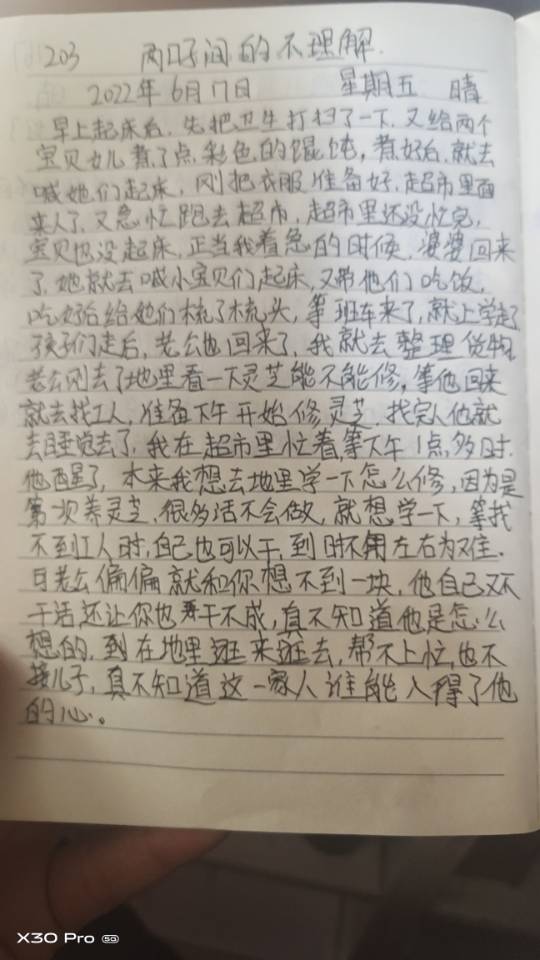 203 两口子间的不理解.
2022年6月17日 星期五 晴
早上起床后.先把卫生打扫了一下.又给两个
宝贝女儿煮了点彩色的馄饨,煮好后.就去
喊她们起床.刚把衣服准备好.超市里面
来人了.又急忙跑去超市.超市里还没忙完,
宝贝也没起床.正当我着急的时候.婆婆回来
了.她就去喊小宝贝们起床,又带他们吃饭,
吃好后给她们梳了梳头,等班车来了,就上学走了
孩子们走后,老公也回来了,我就去整理货物.
老公刚去了地里看一下灵芝能不能修,等他回来
就去找工人,准备下午开始修灵芝.找完人他就
去睡觉去了.我在超市里忙着,等下午1点多时.
他醒了,本来我想去地里学一下怎么修,因为是
第一次养灵芝.很多活不会做,就想学一下,等找
不到工人时,自己也可以干.到时不用左右为难.
可老公偏偏就和你想不到一块.他自己又不
干活还让你也干不成,真不知道他是怎么
想的.到在地里逛来逛去,帮不上忙,也不
接儿子,真不知道这一家人谁能入得了他
的心。
X30 Pro 5G